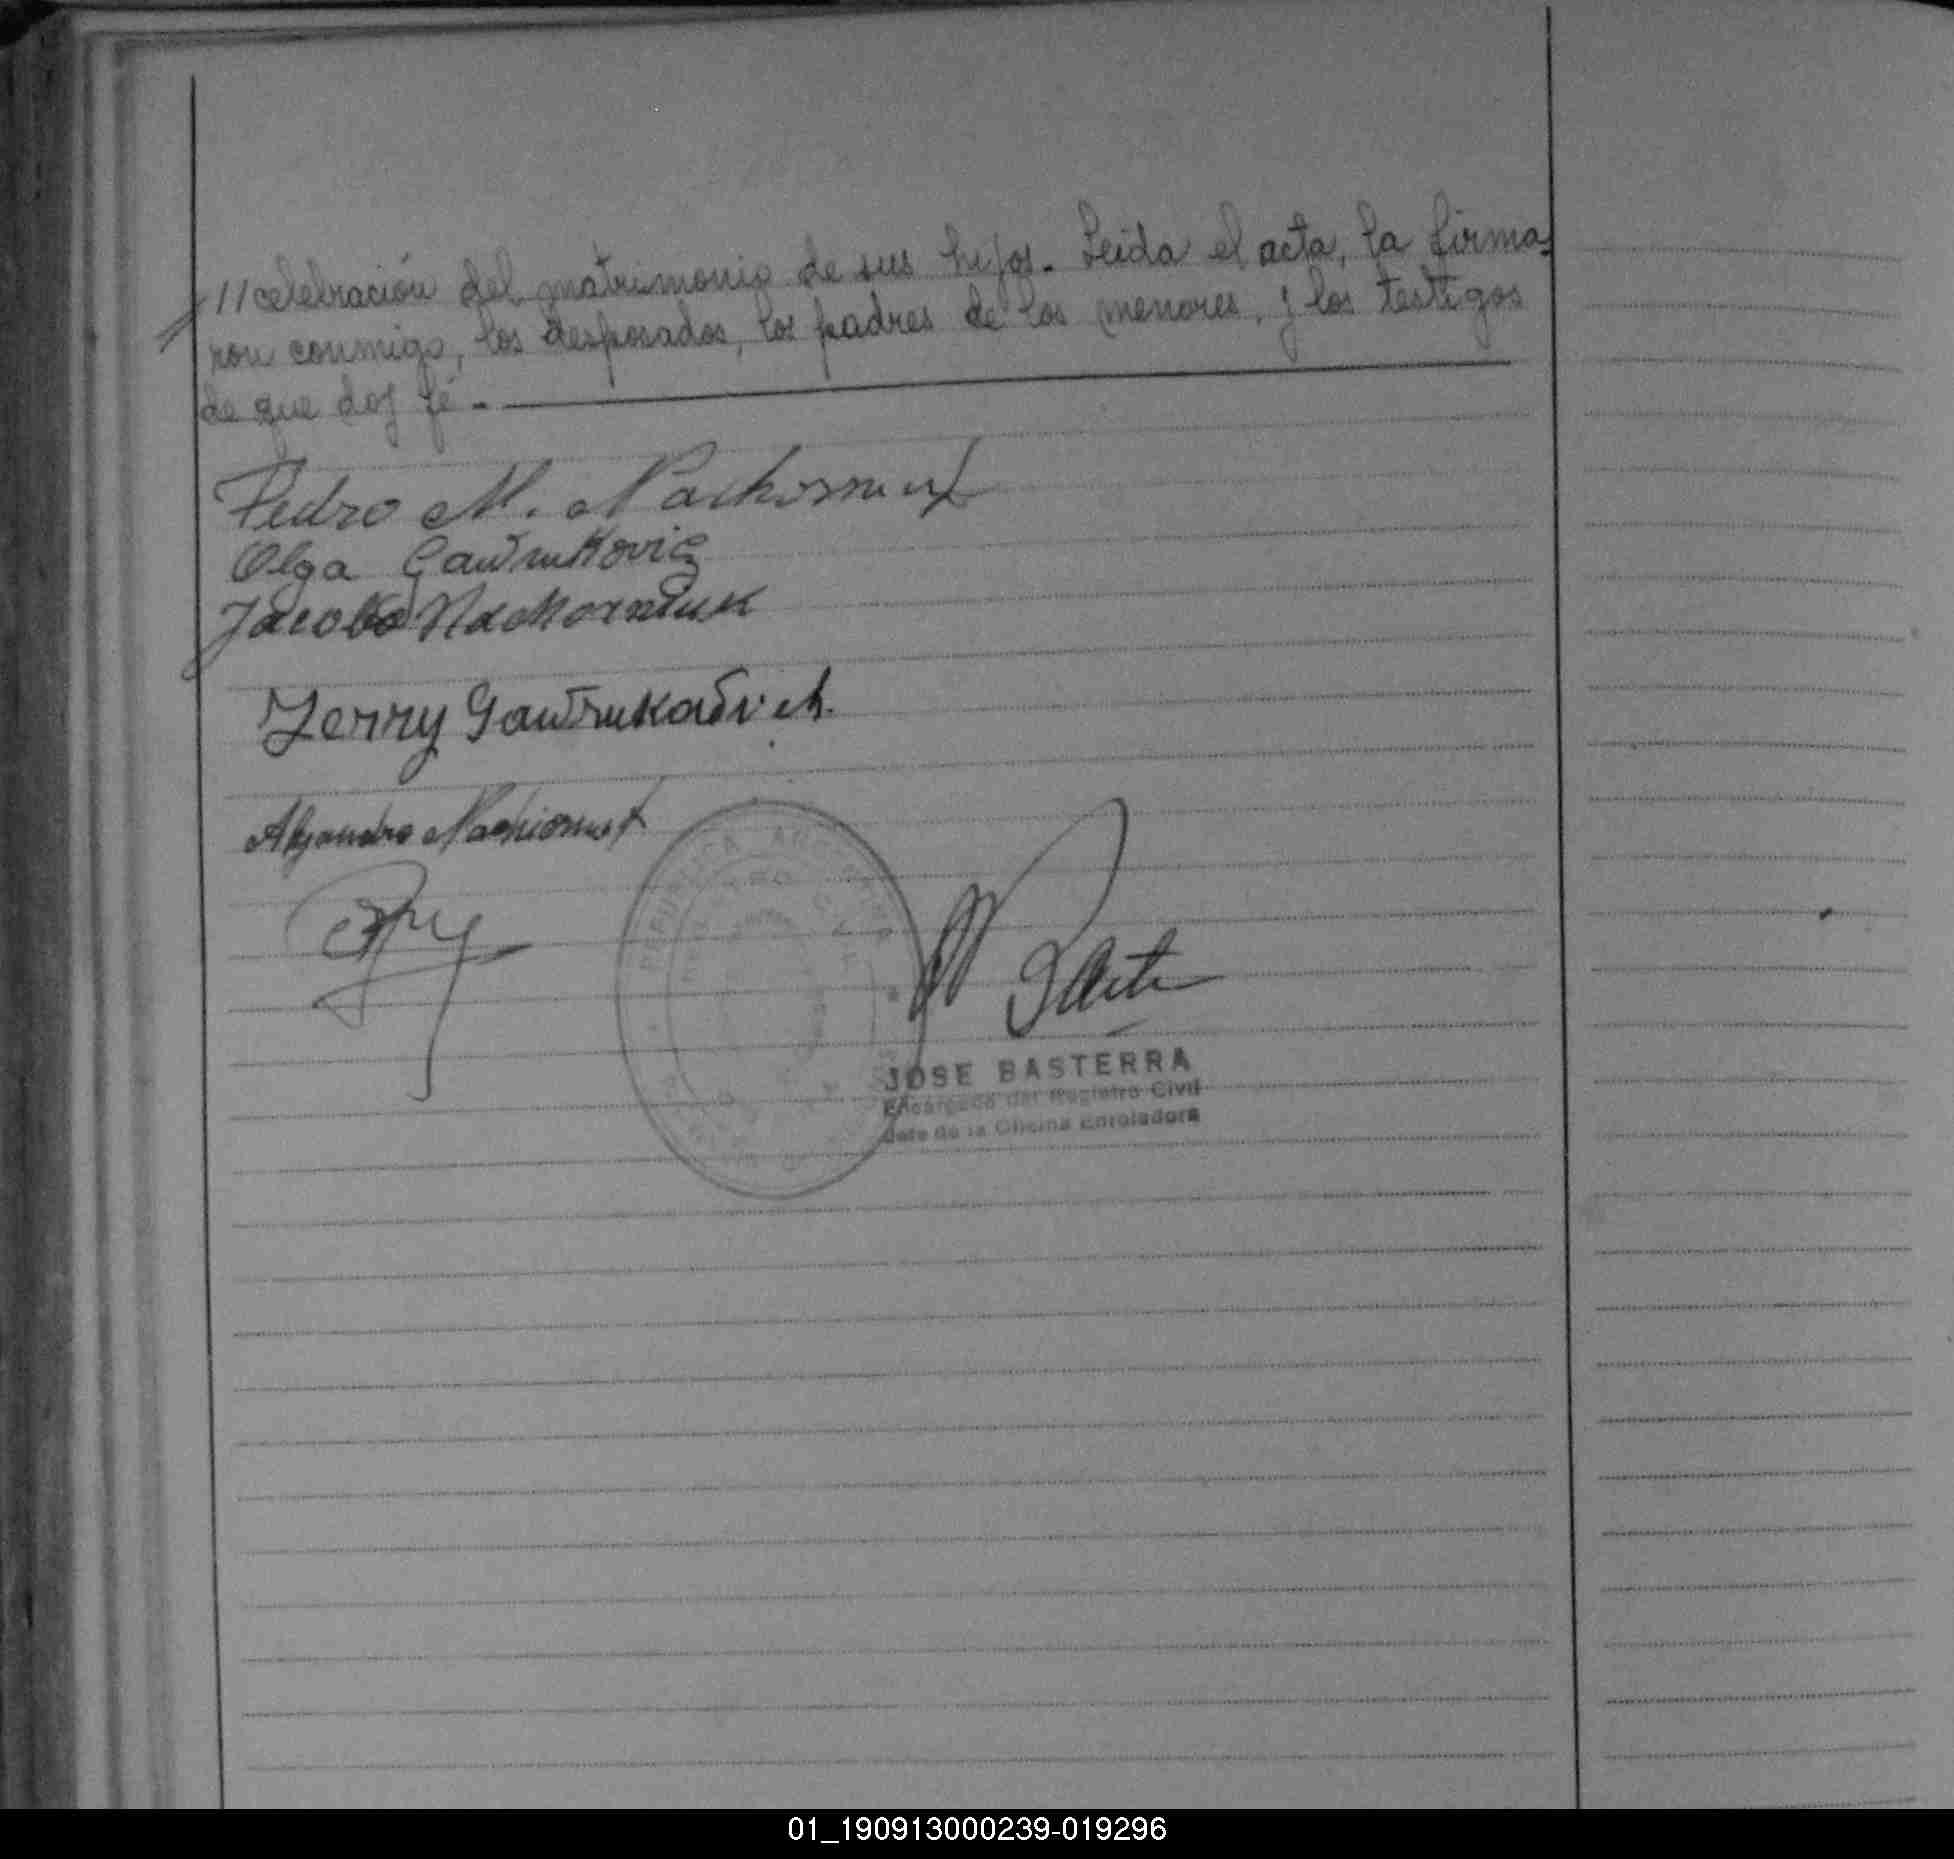 //celebración del matrimonio de sus hijos.- Leida el acta, la firma-
ron conmigo, los desposados, los padres de los menores, y los testigos
de que doy fé.-
Pedro M. Nachorniuk
Olga Gawrukovicz
Jacobo Nachorniuk
Jerry Gawrukowich.
Alejandro Nachiorniuk
REPUBLICA ARGENTINA
REGISTRO CIVIL
JOSE BASTERRA
Encargado del Registro Civil
Jefe de la Oficina Enroladora
01_190913000239-019296